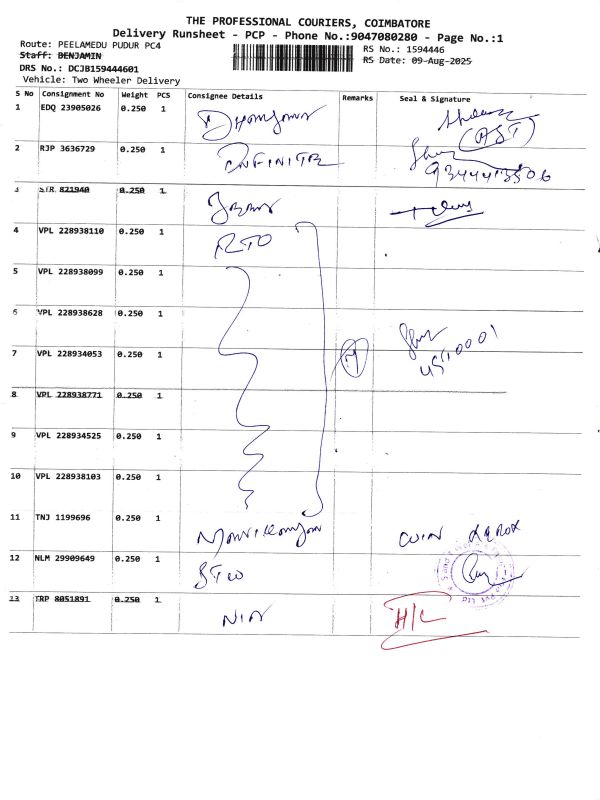 THE PROFESSIONAL COURIERS, COIMBATORE
Delivery Runsheet - PCP - Phone No.:9047080280 - Page No.:1
Route: PEELAMEDU PUDUR PC4
RS No.: 1594446
Staff: BENJAMIN
RS Date: 09-Aug-2025
DRS No.: DCJB159444601
Vehicle: Two Wheeler Delivery
S No Consignment No Weight PCS Consignee Details Remarks Seal & Signature
1 EDQ 23905026 0.250 1
(AST)
2 RJP 3636729 0.250 1 INFINITE
3 STR 821940 0.250 1
4 VPL 228938110 0.250 1 RTO
5 VPL 228938099 0.250 1
6 VPL 228938628 0.250 1
7 VPL 228934053 0.250 1 7
8 VPL 228938771 0.250 1
9 VPL 228934525 0.250 1
10 VPL 228938103 0.250 1
11 TNJ 1199696 0.250 1 COIN XEROX
12 NLM 29909649 0.250 1
13 TRP 8051891 0.250 1 H/C